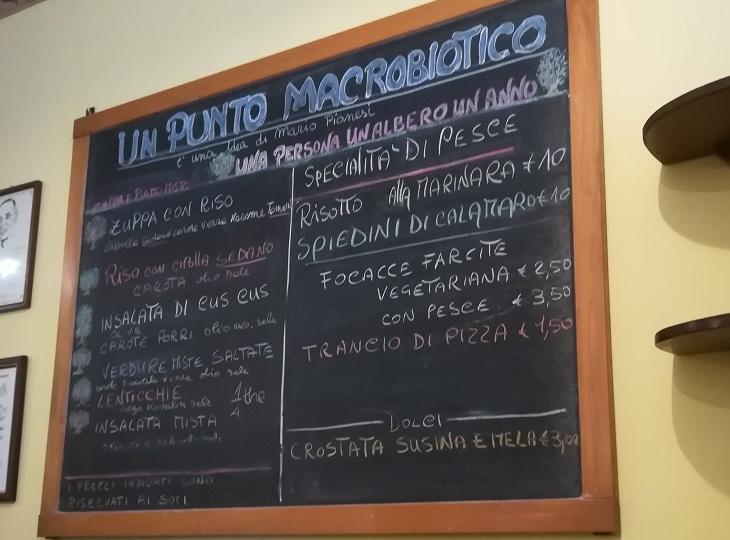 UN PUNTO MACROBIOTICO
è una idea di Mario Pianesi
UNA PERSONA UN ALBERO UN ANNO
ZUPPA CON RISO
RISO CON CIPOLLA SEDANO
CAROTA olio sale
INSALATA DI CUS CUS
CAROTE PORRI olio sale
VERDURE MISTE SALTATE
olio sale
LENTICCHIE
sale
INSALATA MISTA
I PREZZI INDICATI SONO
RISERVATI AI SOCI
SPECIALITA' DI PESCE
RISOTTO ALLA MARINARA € 10
SPIEDINI DI CALAMARO € 10
FOCACCE FARCITE
VEGETARIANA € 2,50
CON PESCE € 3,50
TRANCIO DI PIZZA € 1,50
DOLCI
CROSTATA SUSINA E MELA € 3,00